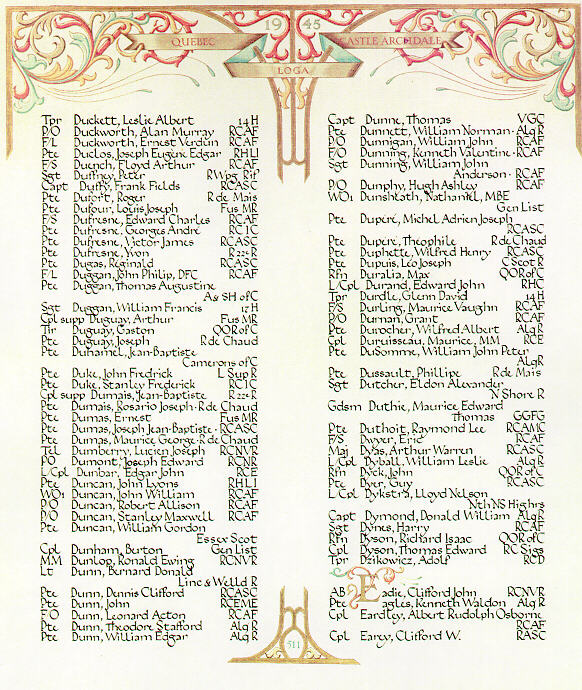 1945
QUEBEC
CASTLE ARCHDALE
LOGA
Tpr Duckett, Leslie Albert 14 H
P/O Duckworth, Alan Murray RCAF
F/L Duckworth, Ernest Verdun RCAF
Pte Duclos, Joseph Eugene Edgar RHLI
F/S Duench, Floyd Arthur RCAF
Sgt Duffney, Peter R Wpg Rif
Capt Duffy, Frank Fields RCASC
Pte Dufort, Roger R de Mais
Pte Dufour, Louis Joseph Fus MR
F/S Dufresne, Edward Charles RCAF
Pte Dufresne, Georges André RCIC
Pte Dufresne, Victor James RCASC
Pte Dufresne, Yvon R 22e R
Pte Dugas, Réginald RCASC
F/L Duggan, John Philip, DFC RCAF
Pte Duggan, Thomas Augustine
A & SH of C
Sgt Duggan, William Francis 17 H
Cpl supp Duguay, Arthur Fus MR
Tpr Duguay, Gaston QOR of C
Pte Duguay, Joseph R de Chaud
Pte Duhamel, Jean-Baptiste
Camerons of C
Pte Duke, John Fredrick L Sup R
Pte Duke, Stanley Frederick RCIC
Cpl supp Dumais, Jean-Baptiste R 22e R
Pte Dumais, Rosario Joseph · R de Chaud
Pte Dumas, Ernest Fus MR
Pte Dumas, Joseph Jean-Baptiste · RCASC
Pte Dumas, Maurice George · R de Chaud
Tel Dumberry, Lucien Joseph RCNVR
PO Dumont, Joseph Edward RCNR
L/Cpl Dunbar, Edgar John RCE
Pte Duncan, John Lyons RHLI
WO1 Duncan, John William RCAF
P/O Duncan, Robert Allison RCAF
P/O Duncan, Stanley Maxwell RCAF
Pte Duncan, William Gordon
Essex Scot
Cpl Dunham, Burton Gen List
MM Dunlop, Ronald Ewing RCNVR
Lt Dunn, Bernard Donald
Linc & Welld R
Pte Dunn, Dennis Clifford RCASC
Pte Dunn, John RCEME
F/O Dunn, Leonard Acton RCAF
Pte Dunn, Theodore Stafford Alq R
Pte Dunn, William Edgar Alq R
Capt Dunne, Thomas VGC
Pte Dunnett, William Norman · Alq R
P/O Dunnigan, William John RCAF
F/O Dunning, Kenneth Valentine · RCAF
Sgt Dunning, William John
Anderson · RCAF
P/O Dunphy, Hugh Ashley RCAF
WO1 Dunsheath, Nathaniel, MBE
Gen List
Pte Duperé, Michel Adrien Joseph
RCASC
Pte Duperé, Theophile R de Chaud
Pte Duphette, Wilfred Henry RCASC
Pte Dupuis, Léo Joseph C Scot R
Rfn Duralia, Max QOR of C
L/Cpl Durand, Edward John RHC
Tpr Durdle, Glenn David 14 H
F/S Durling, Maurice Vaughn RCAF
P/O Durnan, Grant RCAF
Pte Durocher, Wilfred Albert Alq R
Cpl Duruisseau, Maurice, MM RCE
Pte DuSomme, William John Peter
Alq R
Pte Dussault, Phillipe R de Mais
Sgt Dutcher, Eldon Alexander
N Shore R
Gdsm Duthie, Maurice Edward
Thomas GGFG
Pte Duthoit, Raymond Lee RCAMC
F/S Dwyer, Eric RCAF
Maj Dyas, Arthur Warren RCASC
L/Cpl Dyball, William Leslie Alq R
Rfn Dyck, John QOR of C
Pte Dyer, Guy RCASC
L/Cpl Dykstra, Lloyd Nelson
Nth NS Highrs
Capt Dymond, Donald William Alq R
Sgt Dynes, Harry RCAF
Rfn Dyson, Richard Isaac QOR of C
Cpl Dyson, Thomas Edward RC Sigs
Tpr Dzikowicz, Adolf RCD
AB Eadie, Clifford John RCNVR
Pte Eagles, Kenneth Waldon Alq R
Cpl Eardley, Albert Rudolph Osborne
RCAF
Cpl Earey, Clifford W. RASC
511